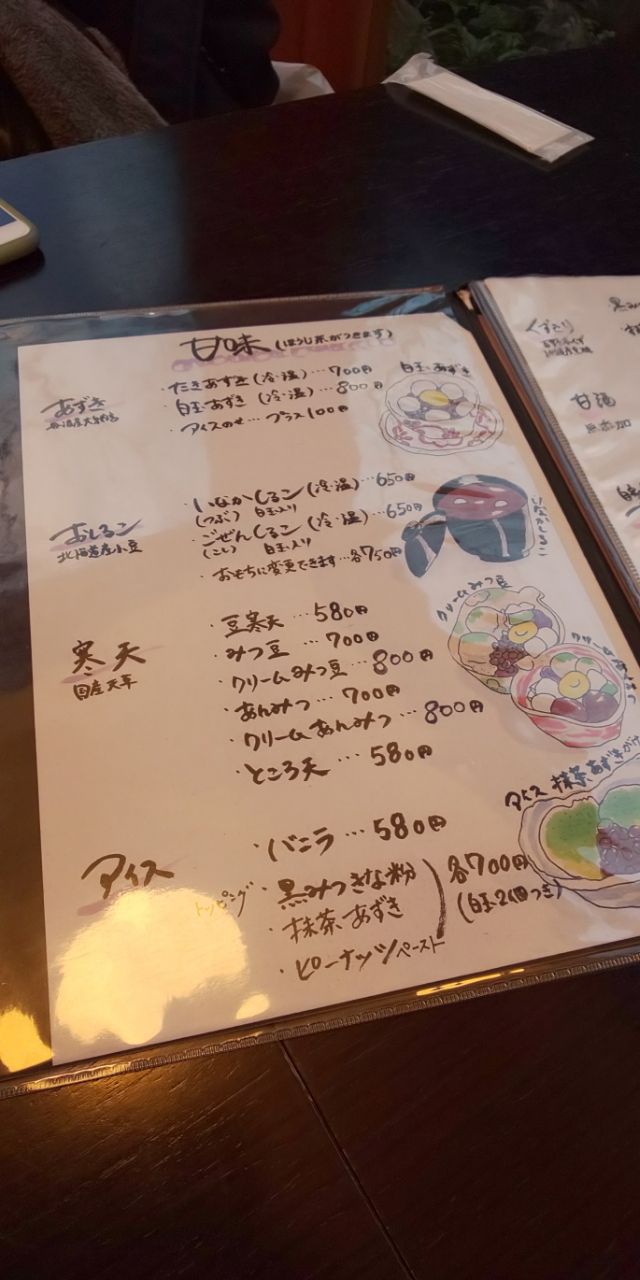 甘味(ほうじ茶がつきます)
あずき
・たきあずき(冷・温)…700円
・白玉あずき(冷・温)…800円
・アイスのせ…プラス100円
白玉あずき
おしるこ
北海道産小豆
・いなかしるこ(冷・温)…650円
(つぶ) 白玉入り
・ごぜんしるこ(冷・温)…650円
(こし) 白玉入り
・おもちに変更できます…各750円
いなかしるこ
寒天
国産天草
・豆寒天…580円
・みつ豆…700円
・クリームみつ豆…800円
・あんみつ…700円
・クリームあんみつ…800円
・ところ天…580円
クリームみつ豆
クリームあんみつ
アイス
・バニラ…580円
トッピング
・黒みつきな粉
・抹茶あずき
・ピーナッツペースト
各700円
(白玉2個つき)
アイス 抹茶あずきがけ
くずきり
黒み
甘酒
無添加